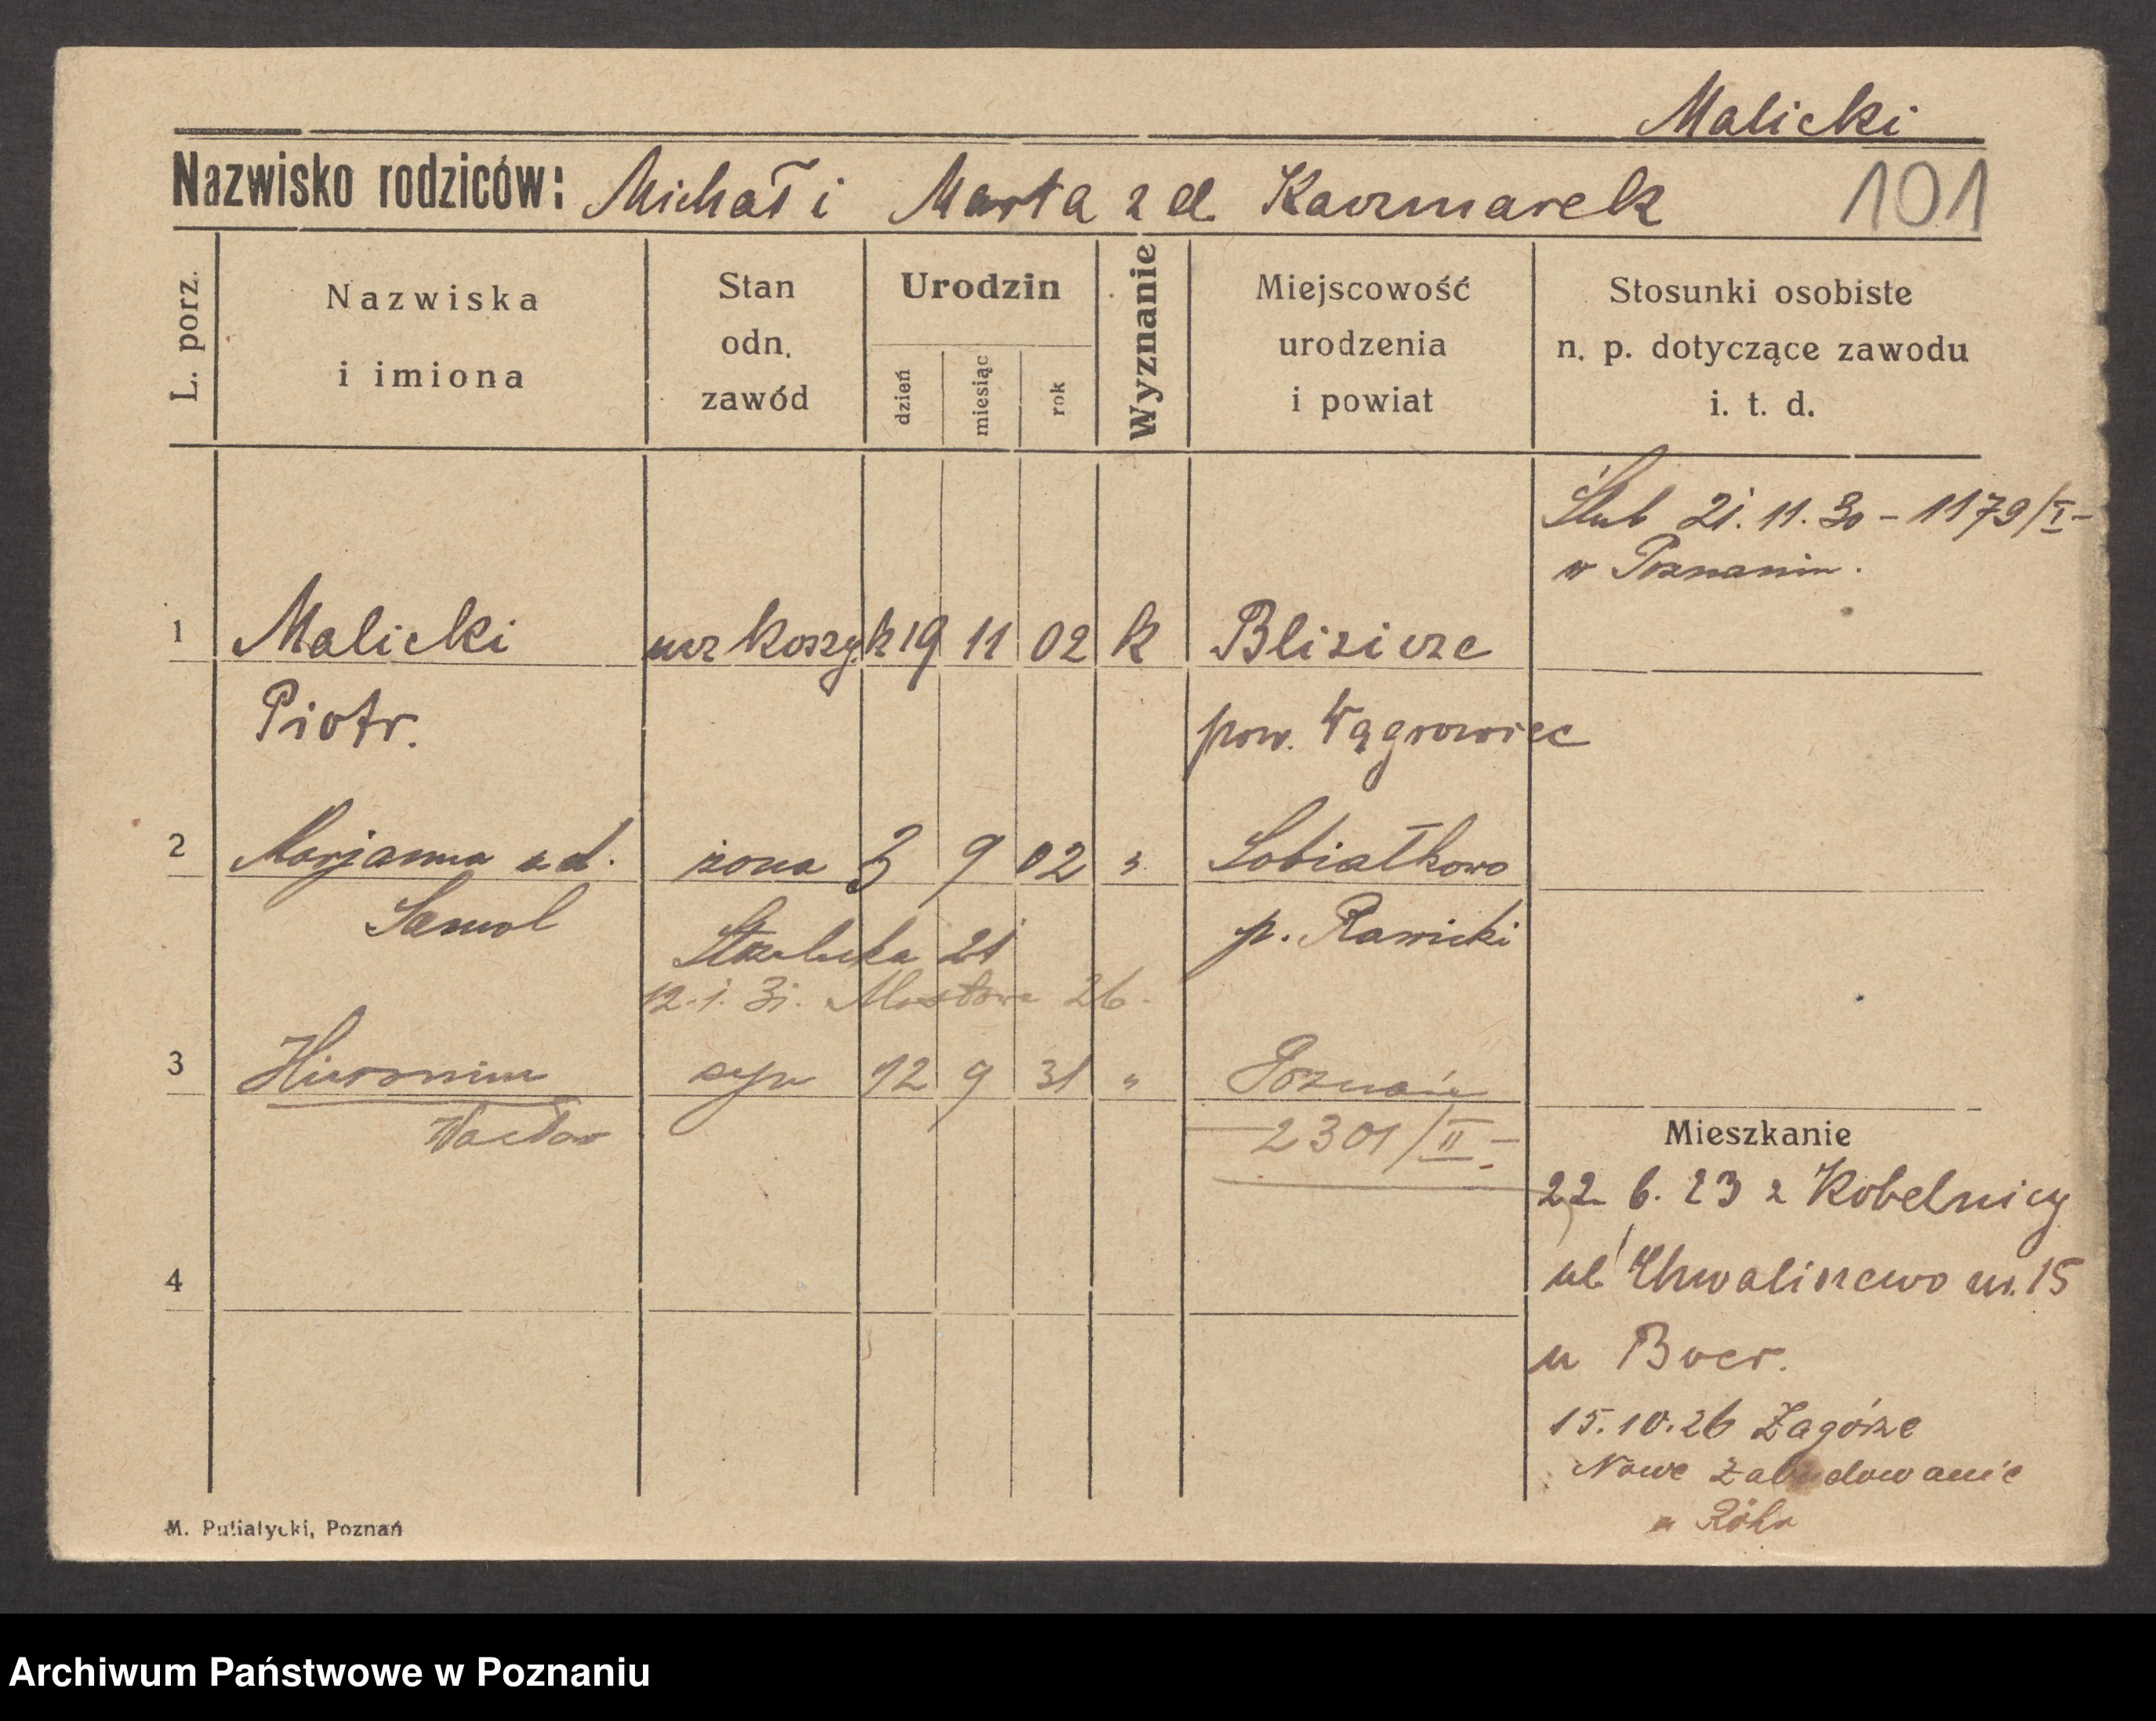 Malicki
Nazwisko rodziców: Michał i Marta z d. Kaczmarek 101
L. porz.
Nazwiska i imiona
Stan odn. zawód
Urodzin
dzień miesiąc rok
Wyznanie
Miejscowość urodzenia i powiat
Stosunki osobiste n. p. dotyczące zawodu i. t. d.
Ślub 21. 11. 30 – 1179/I –
w Poznaniu.
1 Malicki ucz koszyk 19 11 02 k Blizicze
Piotr. pow. Wągrowiec
2 Marjanna z d. żona 3 9 02 " Sobiałkowo
Samol p. Rawicki
Strzelecka 21
12. 1. 31. Mostowa 26.
3 Hieronim syn 12 9 31 " Poznań
Wacław – 2301/II –
Mieszkanie
22. 6. 23 z Kobelnicy
ul Chwaliszewo nr. 15
4
u Boer.
15. 10. 26 Zagórze
Nowe Zabudowanie
u Röhr
M. Putiatycki, Poznań
Archiwum Państwowe w Poznaniu